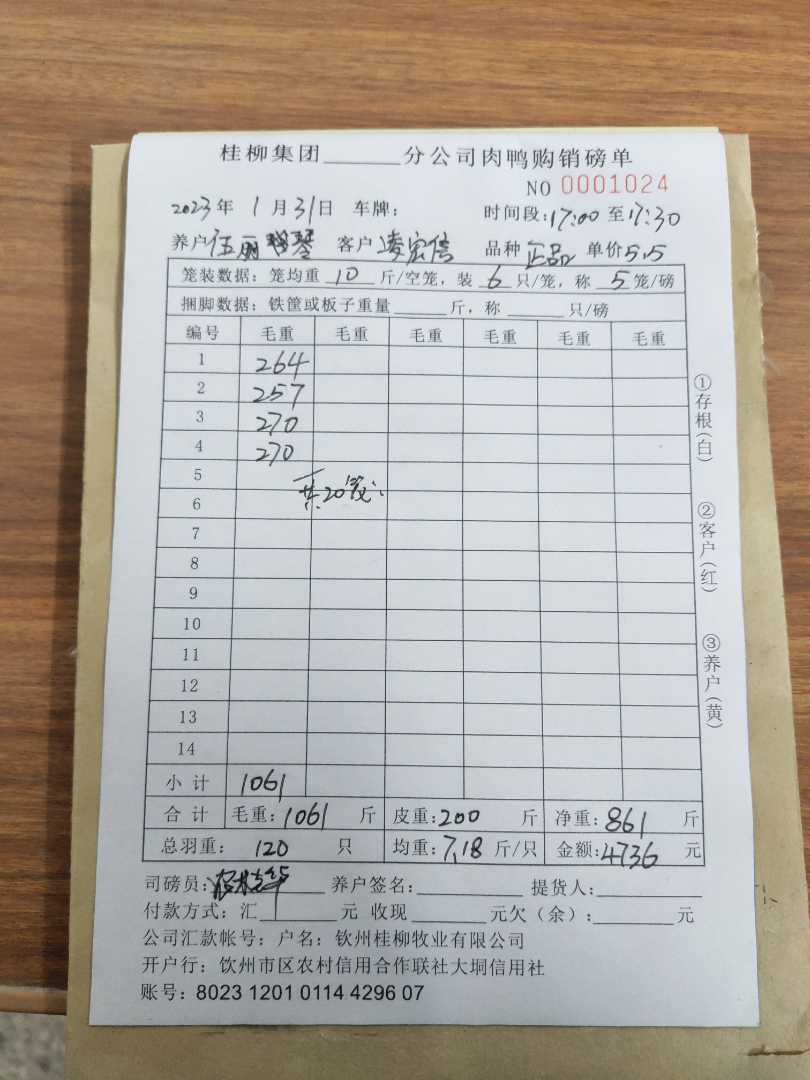 桂柳集团______分公司肉鸭购销磅单
NO 0001024
2023年 1月31日 车牌： 时间段：17:00 至 17:30
养户 伍丽琴 客户 凌宏信 品种 正品 单价 5.5
笼装数据：笼均重 10 斤/空笼，装 6 只/笼，称 5 笼/磅
捆脚数据：铁筐或板子重量______斤，称______只/磅
编号 毛重 毛重 毛重 毛重 毛重 毛重
1 264
2 257
3 270
4 270
5
共20笼
6
7
8
9
10
11
12
13
14
小计 1061
合计 毛重：1061 斤 皮重：200 斤 净重：861 斤
总羽重： 120 只 均重：7.18 斤/只 金额：4736 元
司磅员： 养户签名：________ 提货人：________
付款方式：汇______元 收现______元欠（余）：______元
公司汇款帐号：户名：钦州桂柳牧业有限公司
开户行：饮州市区农村信用合作联社大垌信用社
账号：8023 1201 0114 4296 07
①存根(白)
②客户(红)
③养户(黄)